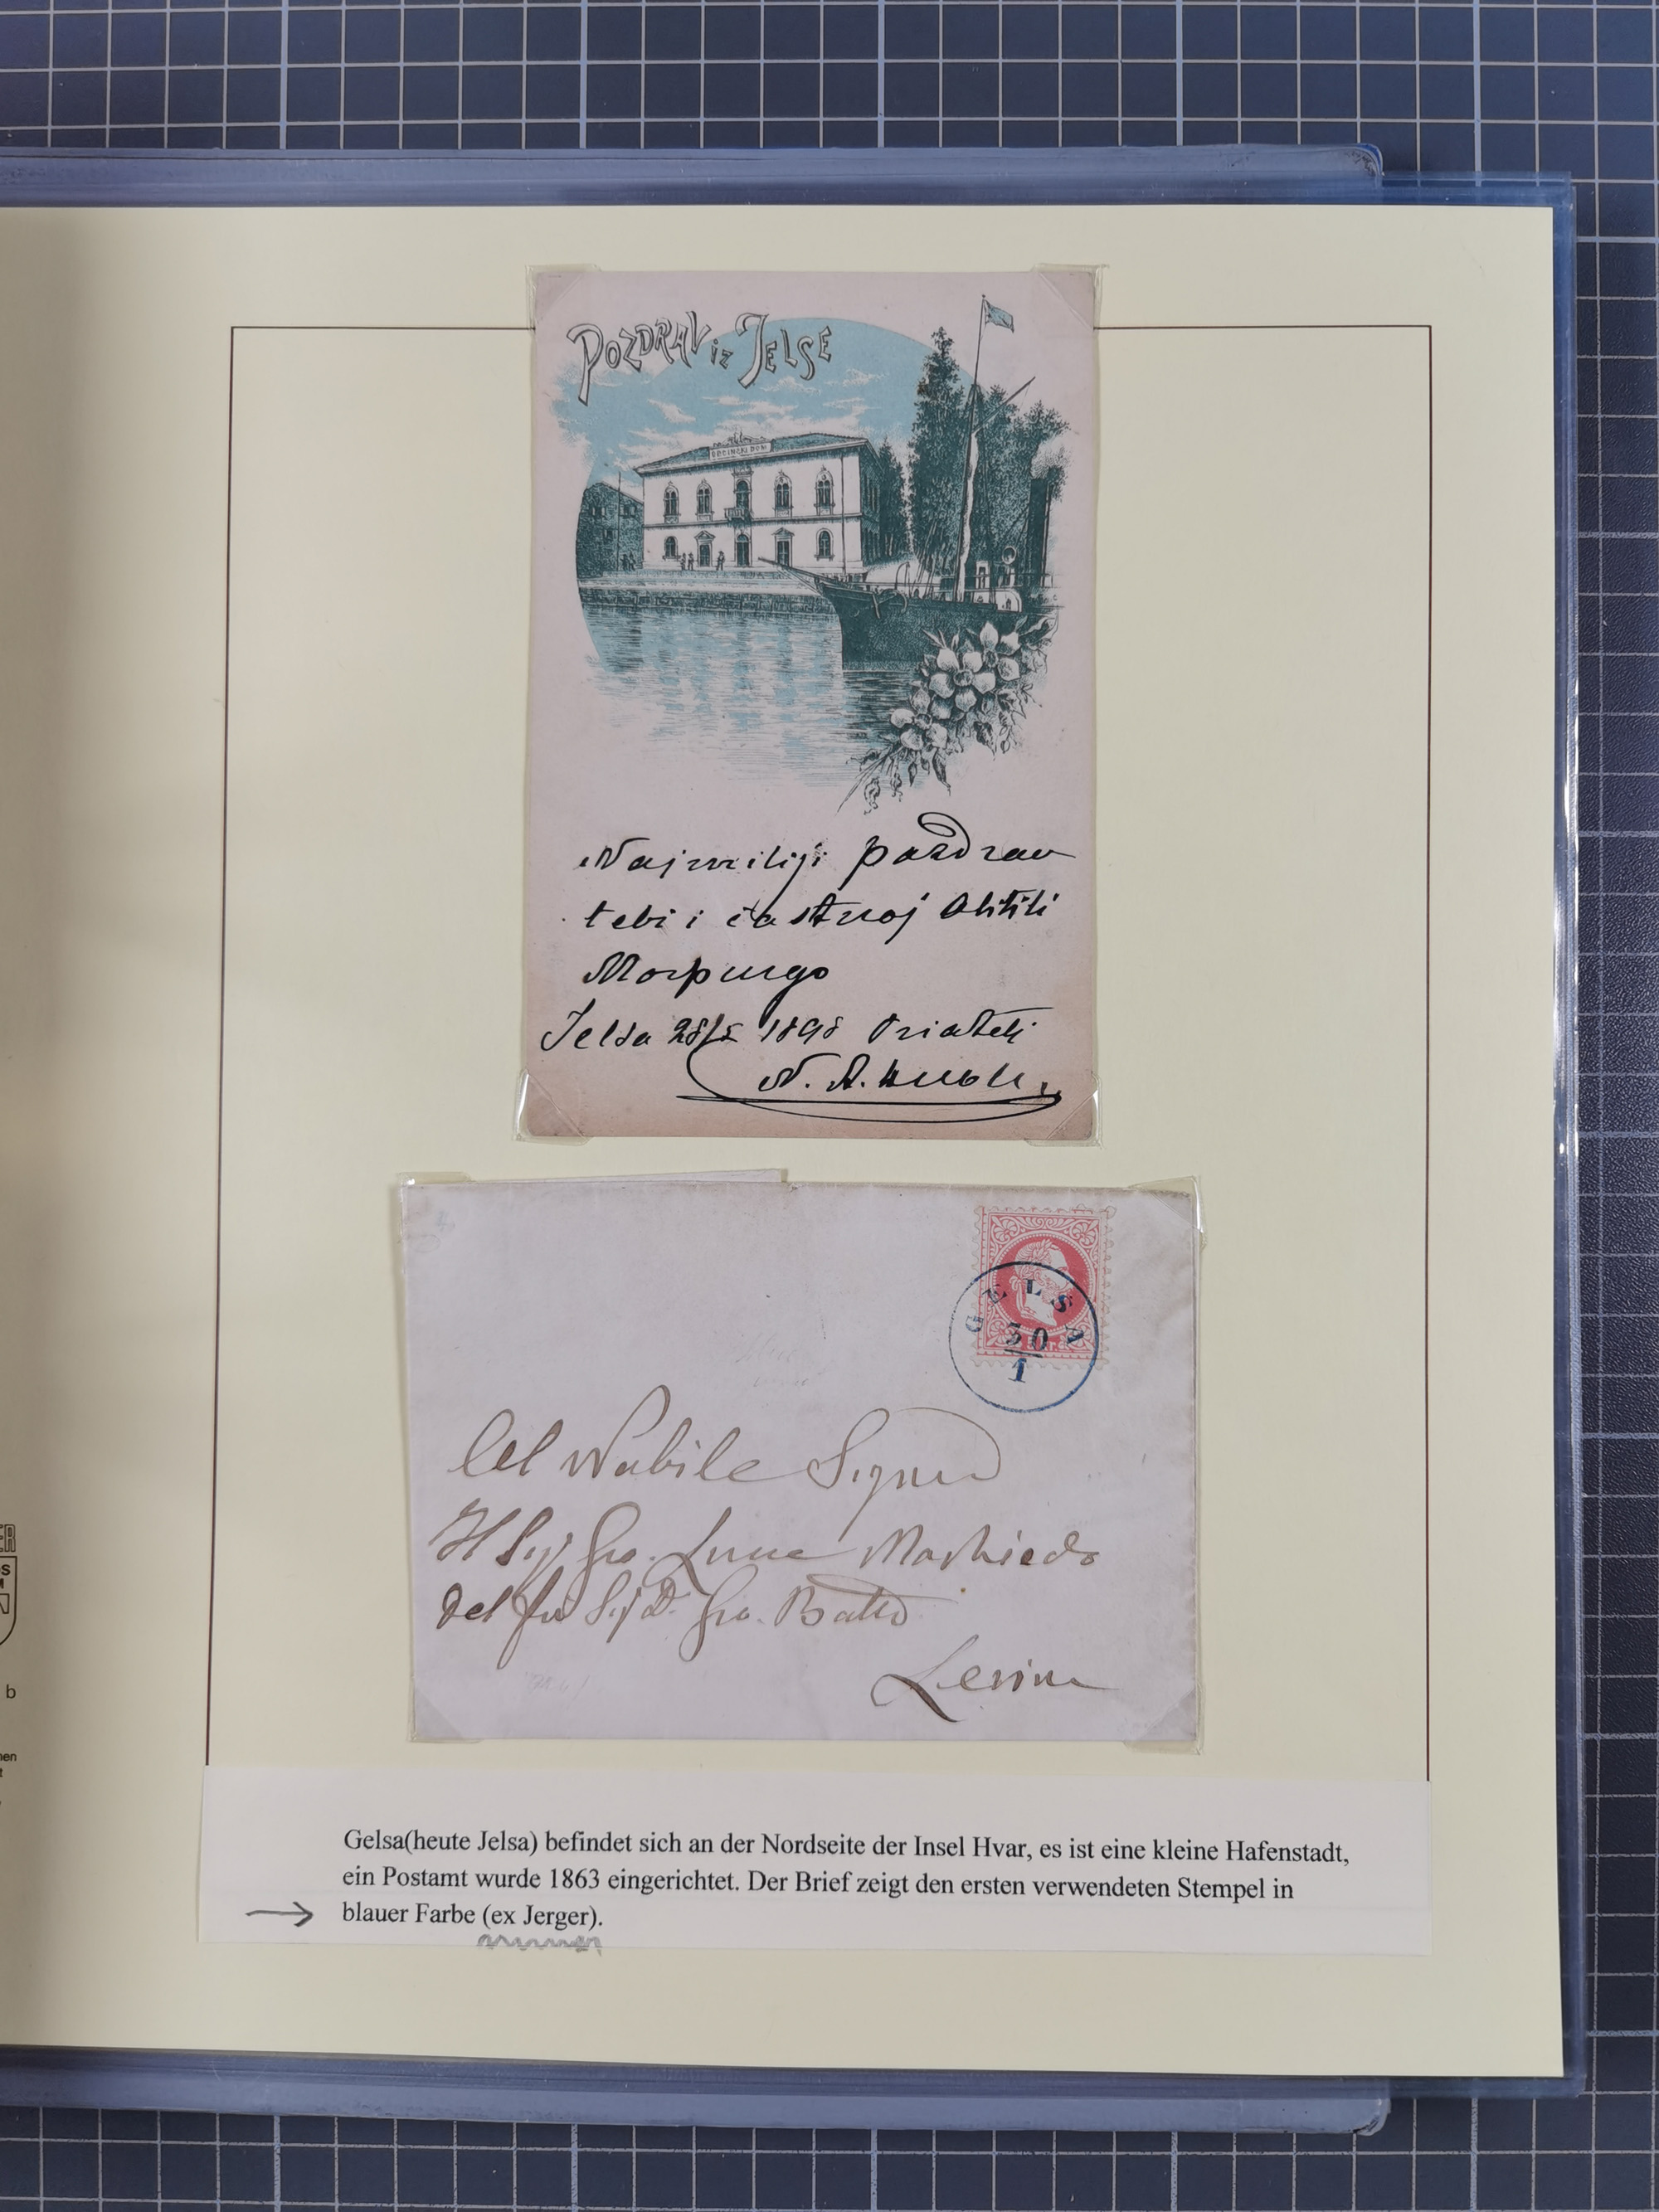 POZDRAV iz JELSE
OPĆINSKI DOM
Najmiliji pozdrav
tebi i častnoj Obitili
Morpurgo
Jelsa 28/5 1898 Priatelj
N. A.
GELSA
30
1
Al Nobile Signor
Il Sigr Gio. Luca Machiedo
del fu Sigr Gio. Batta
Lesina
ER
b
Gelsa(heute Jelsa) befindet sich an der Nordseite der Insel Hvar, es ist eine kleine Hafenstadt,
ein Postamt wurde 1863 eingerichtet. Der Brief zeigt den ersten verwendeten Stempel in
blauer Farbe (ex Jerger).